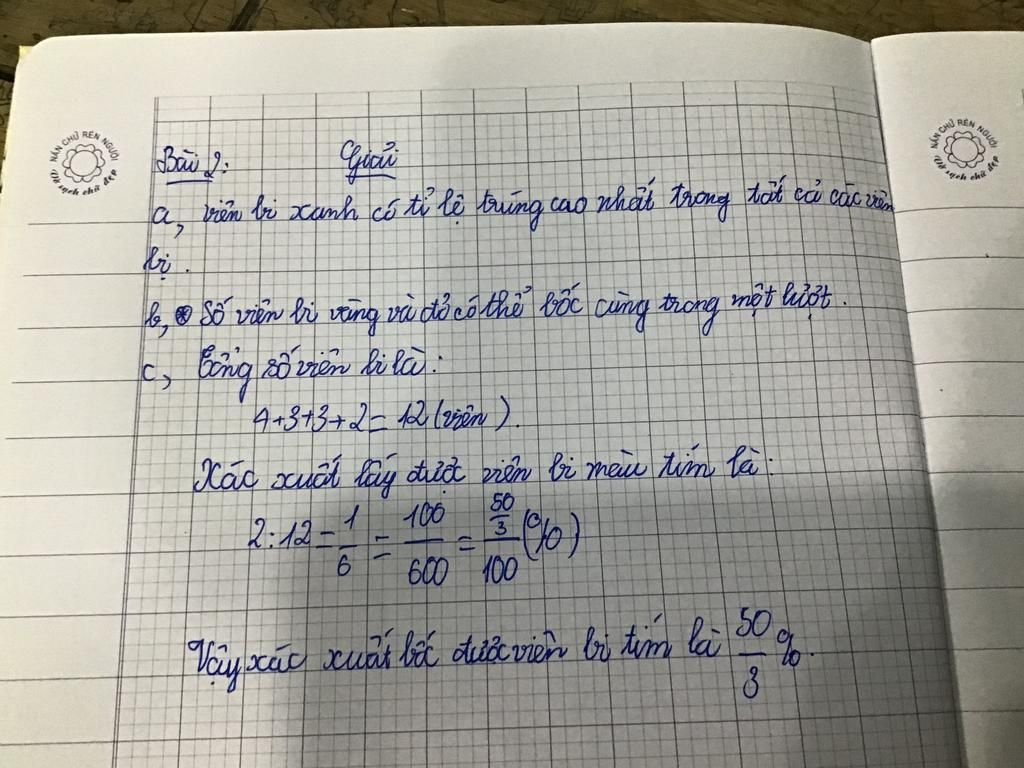 NẮN CHỮ RÈN NGƯỜI
Vở sạch chữ đẹp
NẮN CHỮ RÈN NGƯỜI
Vở sạch chữ đẹp
Bài 2: Giải
a, viên bi xanh có tỉ lệ trúng cao nhất trong tất cả các viên
bi.
b, Số viên bi vàng và đỏ có thể bốc cùng trong một lượt.
c, Tổng số viên bi là:
4+3+3+2=12 (viên).
Xác xuất lấy được viên bi màu tím là:
2:12 = 1/6 = 100/600 = 50/3/100 (%)
Vậy xác xuất bốc được viên bi tím là 50/3 %.